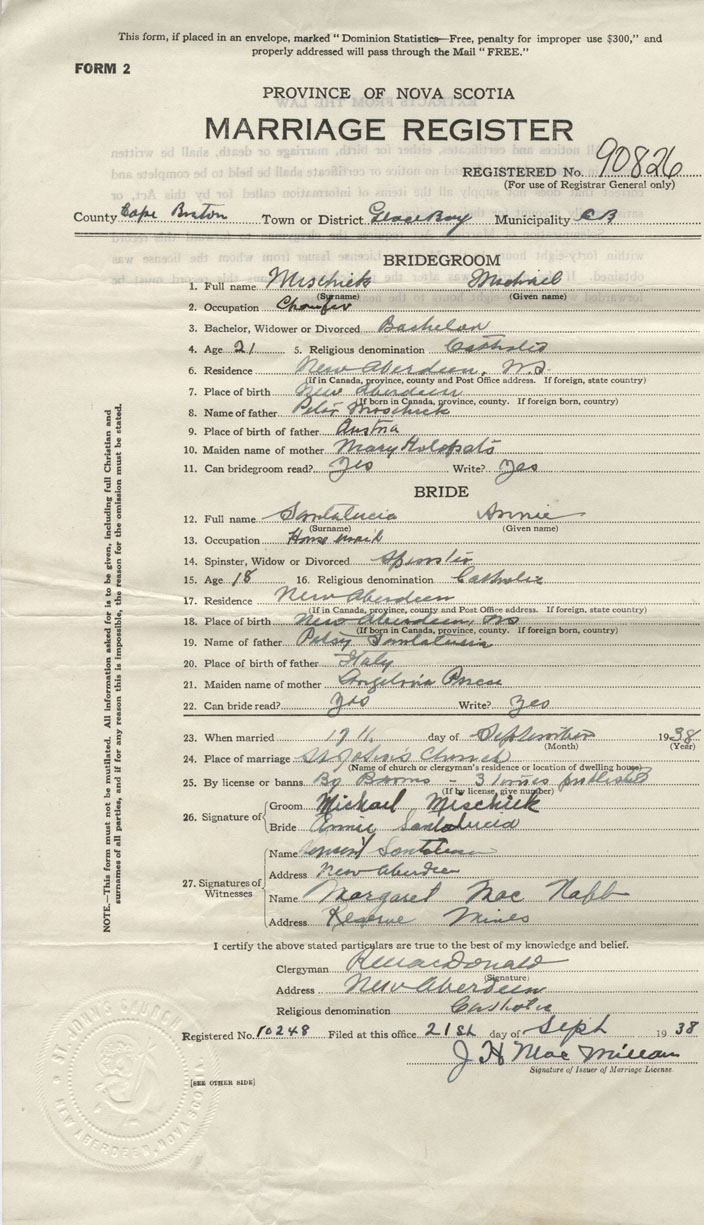 This form, if placed in an envelope, marked "Dominion Statistics—Free, penalty for improper use $300," and
properly addressed will pass through the Mail "FREE."
FORM 2
PROVINCE OF NOVA SCOTIA
MARRIAGE REGISTER
REGISTERED No. 90826
(For use of Registrar General only)
County Cape Breton Town or District Glace Bay Municipality CB
BRIDEGROOM
1. Full name Mischiek Michael
(Surname) (Given name)
2. Occupation
3. Bachelor, Widower or Divorced Bachelor
4. Age 21 5. Religious denomination Catholic
6. Residence New Aberdeen, NS.
(If in Canada, province, county and Post Office address. If foreign, state country)
7. Place of birth New Aberdeen
(If born in Canada, province, county. If foreign born, country)
8. Name of father Peter Mischiek
9. Place of birth of father Austria
10. Maiden name of mother Mary Holopats
11. Can bridegroom read? Yes Write? Yes
BRIDE
12. Full name Santalucia Annie
(Surname) (Given name)
13. Occupation House maid
14. Spinster, Widow or Divorced Spinster
15. Age 18 16. Religious denomination Catholic
17. Residence New Aberdeen
(If in Canada, province, county and Post Office address. If foreign, state country)
18. Place of birth New Aberdeen, NS
(If born in Canada, province, county. If foreign born, country)
19. Name of father Patsy Santalucia
20. Place of birth of father Italy
21. Maiden name of mother
22. Can bride read? Yes Write? Yes
23. When married day of September 1938
(Month) (Year)
24. Place of marriage St John's Church
(Name of church or clergyman's residence or location of dwelling house)
25. By license or banns By Banns - 3 times published
(If by license, give number)
26. Signature of
Groom Michael Mischiek
Bride Annie Santalucia
27. Signatures of Witnesses
Name Santalucia
Address New Aberdeen
Name Margaret Mac Nabb
Address Reserve Mines
I certify the above stated particulars are true to the best of my knowledge and belief.
Clergyman MacDonald
(Signature)
Address New Aberdeen
Religious denomination Catholic
Registered No. 10248 Filed at this office 21st day of Sept 1938
J H Mac Millan
Signature of Issuer of Marriage License.
[SEE OTHER SIDE]
NOTE.—This form must not be mutilated. All information asked for is to be given, including full Christian and
surnames of all parties, and if for any reason this is impossible, the reason for the omission must be stated.
ST. JOHN'S CHURCH
NEW ABERDEEN, NOVA SCOTIA